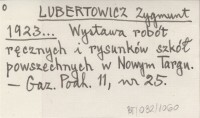 LUBERTOWICZ Zygmunt
1923... Wystawa robót
ręcznych i rysunków szkół
powszechnych w Nowym Targu.
— Gaz. Podh. 11, nr 25.